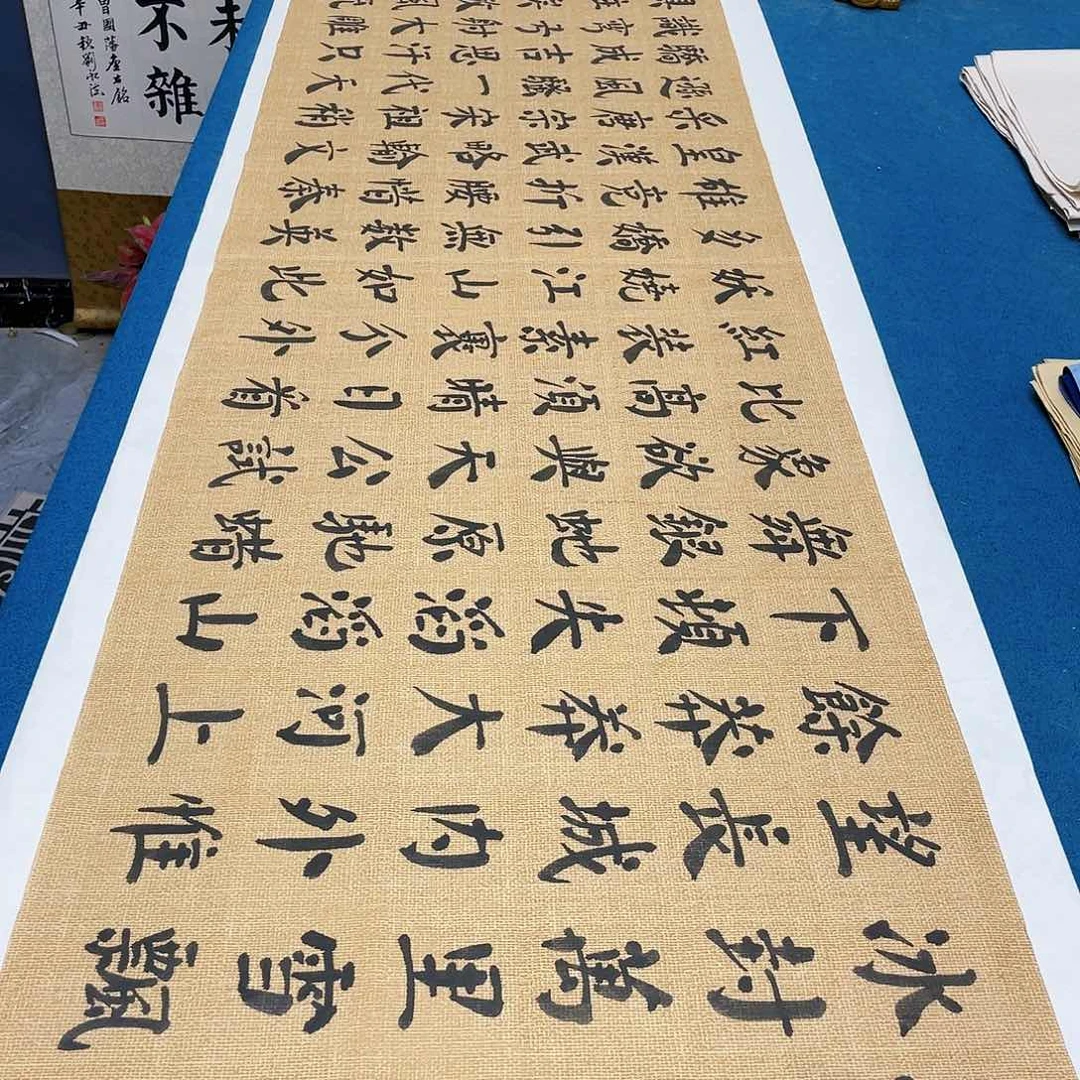 冰封萬里雪飄
望長城内外惟
餘莽莽大河上
下頓失滔滔山
舞銀蛇原馳蠟
象欲與天公試
比高須晴日看
紅裝素裹分外
妖嬈江山如此
多嬌引無數英
雄竞折腰惜秦
皇漢武略輸文
采唐宗宋祖稍
遜風騷一代天
驕成吉思汗只
識彎弓射大雕
不雜
曾國藩座右銘
辛丑秋劉